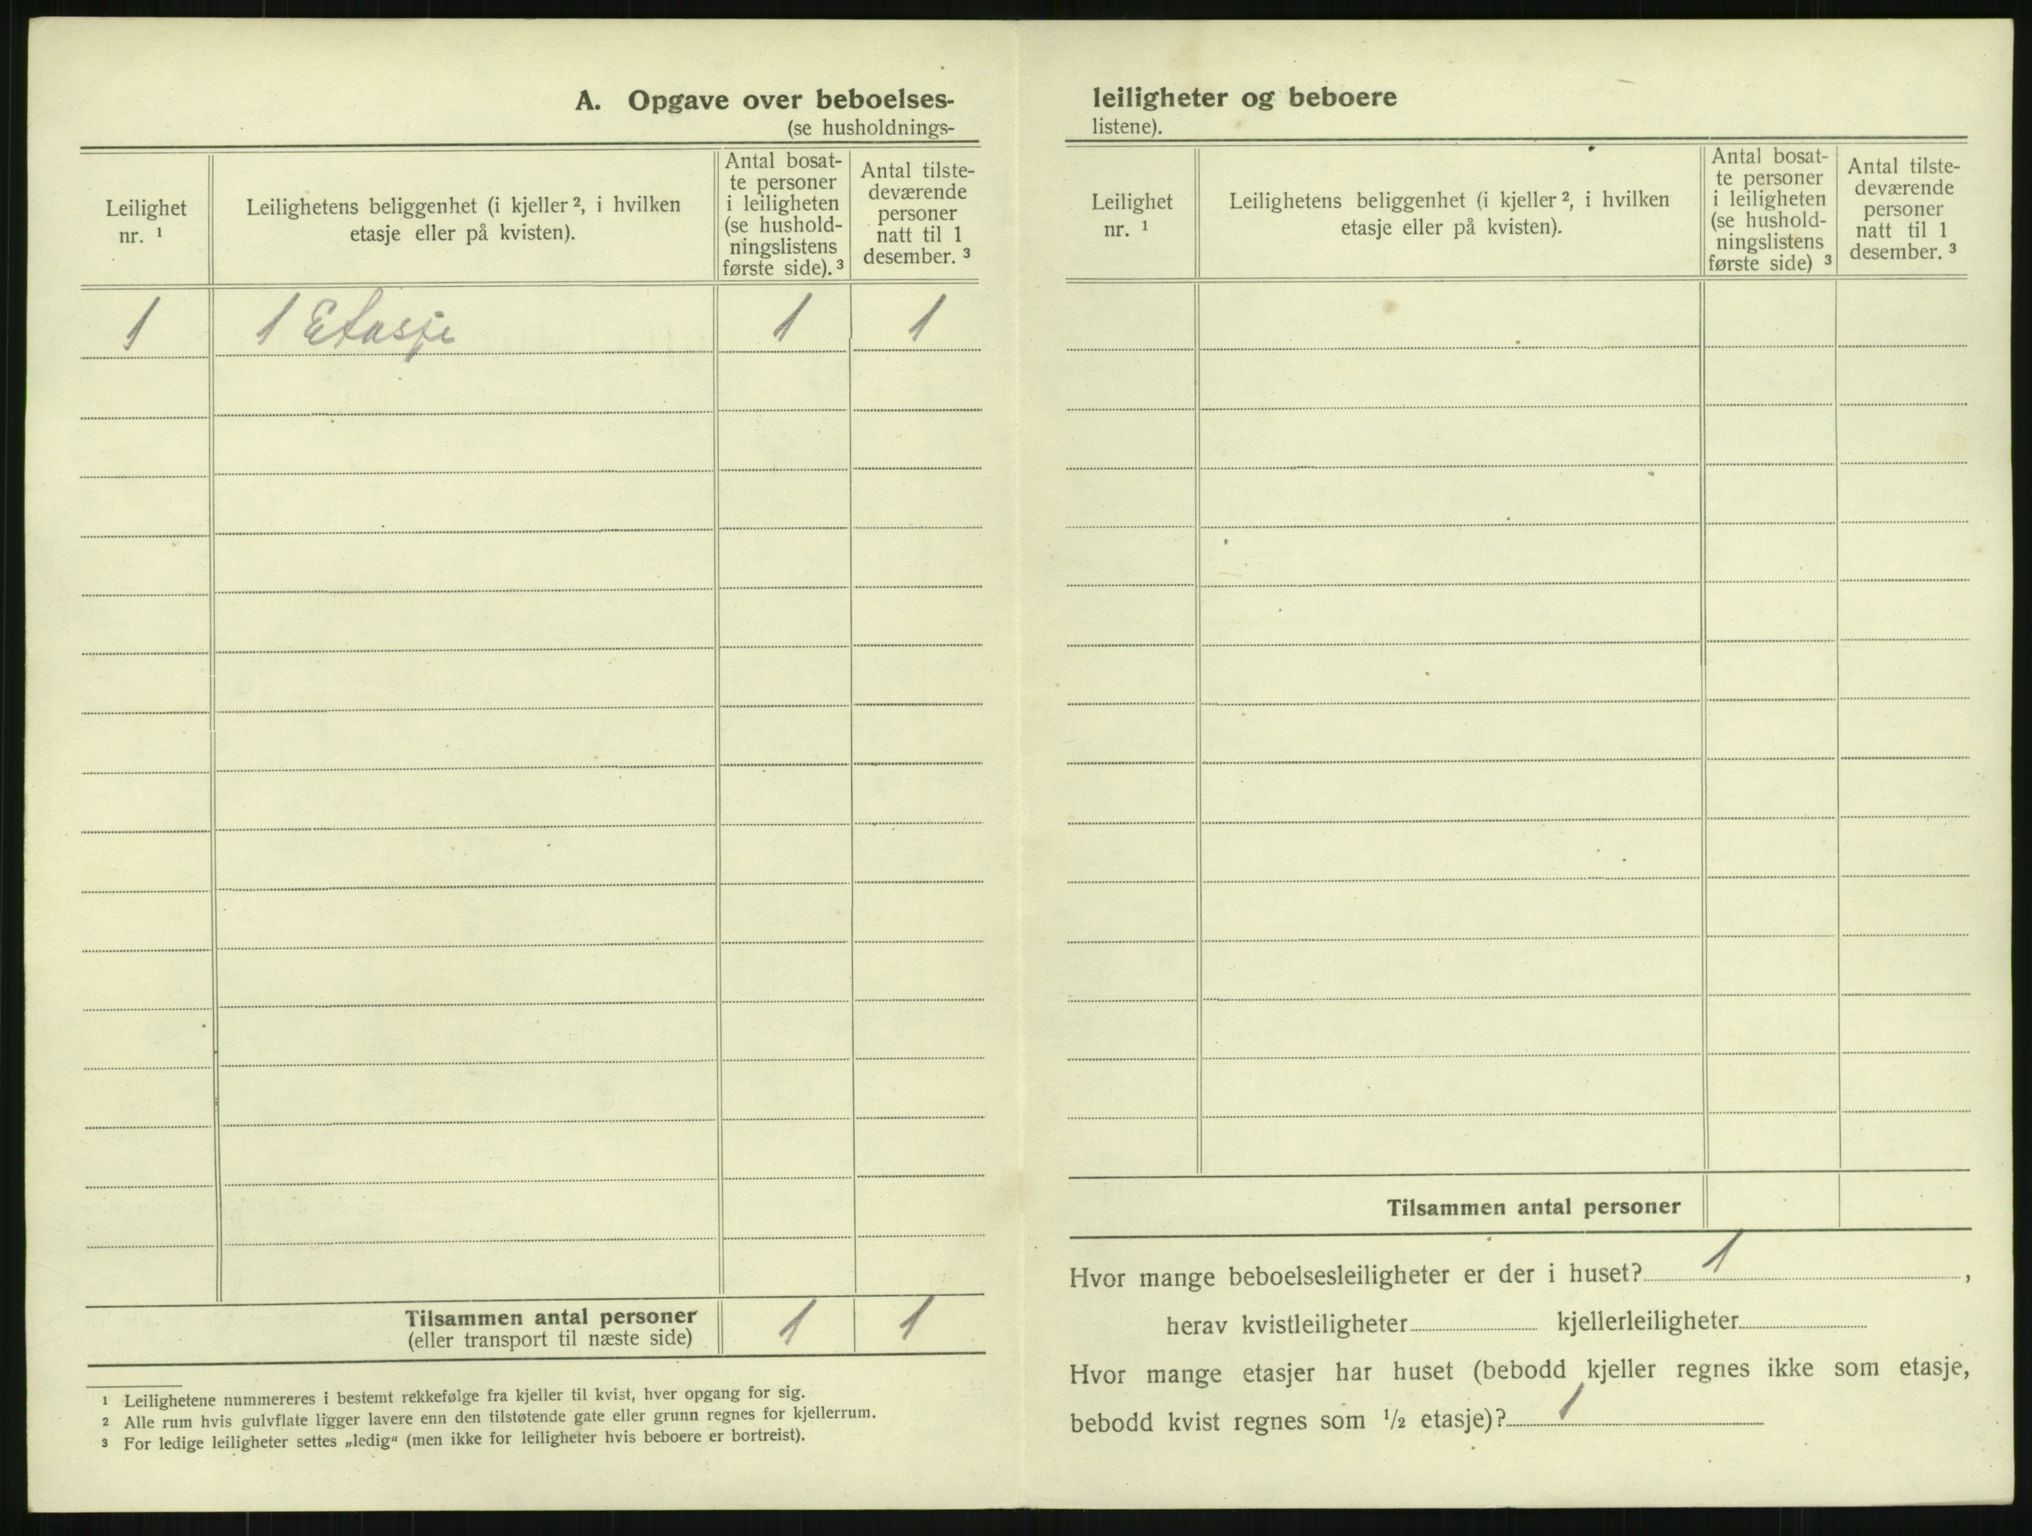 A. Opgave over beboelses-
(se husholdnings-
Leilighet
nr. ¹
Leilighetens beliggenhet (i kjeller ², i hvilken
etasje eller på kvisten).
Antal bosat-
te personer
i leiligheten
(se hushold-
ningslistens
første side). ³
Antal tilste-
deværende
personer
natt til 1
desember. ³
1 1 Etasje 1 1
Tilsammen antal personer 1 1
(eller transport til næste side)
¹ Leilighetene nummereres i bestemt rekkefølge fra kjeller til kvist, hver opgang for sig.
² Alle rum hvis gulvflate ligger lavere enn den tilstøtende gate eller grunn regnes for kjellerrum.
³ For ledige leiligheter settes „ledig“ (men ikke for leiligheter hvis beboere er bortreist).
leiligheter og beboere
listene).
Leilighet
nr. ¹
Leilighetens beliggenhet (i kjeller ², i hvilken
etasje eller på kvisten).
Antal bosat-
te personer
i leiligheten
(se hushold-
ningslistens
første side) ³
Antal tilste-
deværende
personer
natt til 1
desember. ³
Tilsammen antal personer
Hvor mange beboelsesleiligheter er der i huset? 1,
herav kvistleiligheter kjellerleiligheter
Hvor mange etasjer har huset (bebodd kjeller regnes ikke som etasje,
bebodd kvist regnes som ¹/₂ etasje)? 1